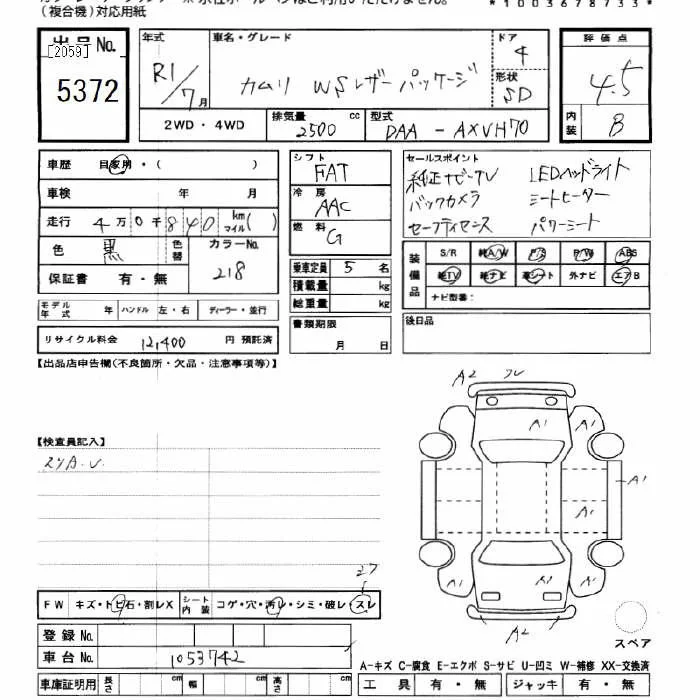 (複合機)対応用紙
*1003678733*
出品No.
[2059]
5372
年式
R1/7月
車名・グレード
カムリ WSレザーパッケージ
ドア
4
形状
SD
評価点
4.5
内装
B
2WD・4WD
排気量 2500 cc
型式 DAA-AXVH70
車歴 自家用・( )
車検 年 月
走行 4万0千840 km マイル( )
色 黒 色替 カラーNo. 218
保証書 有・無
モデル年式 年 ハンドル 左・右 ディーラー・並行
リサイクル料金 12,400 円 預託済
シフト FAT
冷房 AAC
燃料 G
乗車定員 5 名
積載量 kg
総重量 kg
書類期限
月 日
セールスポイント
純正ナビ・TV LEDヘッドライト
バックカメラ シートヒーター
セーフティセンス パワーシート
装備品
S/R 純A/W P/S P/W ABS
純TV 純ナビ 革シート 外ナビ エアB
ナビ型番:
後日品
【出品店申告欄(不良箇所・欠品・注意事項等)】
【検査員記入】
A2
A1 A1
A1
A1
A1 A1
A2
スペア
FW キズ・トビ石・割レX シート内装 コゲ・穴・汚レ・シミ・破レ・スレ
登録No.
車台No. 1053742
車庫証明用 長さ cm 幅 cm 高さ cm
A-キズ C-腐食 E-エクボ S-サビ U-凹ミ W-補修 XX-交換済
工具 有・無 ジャッキ 有・無